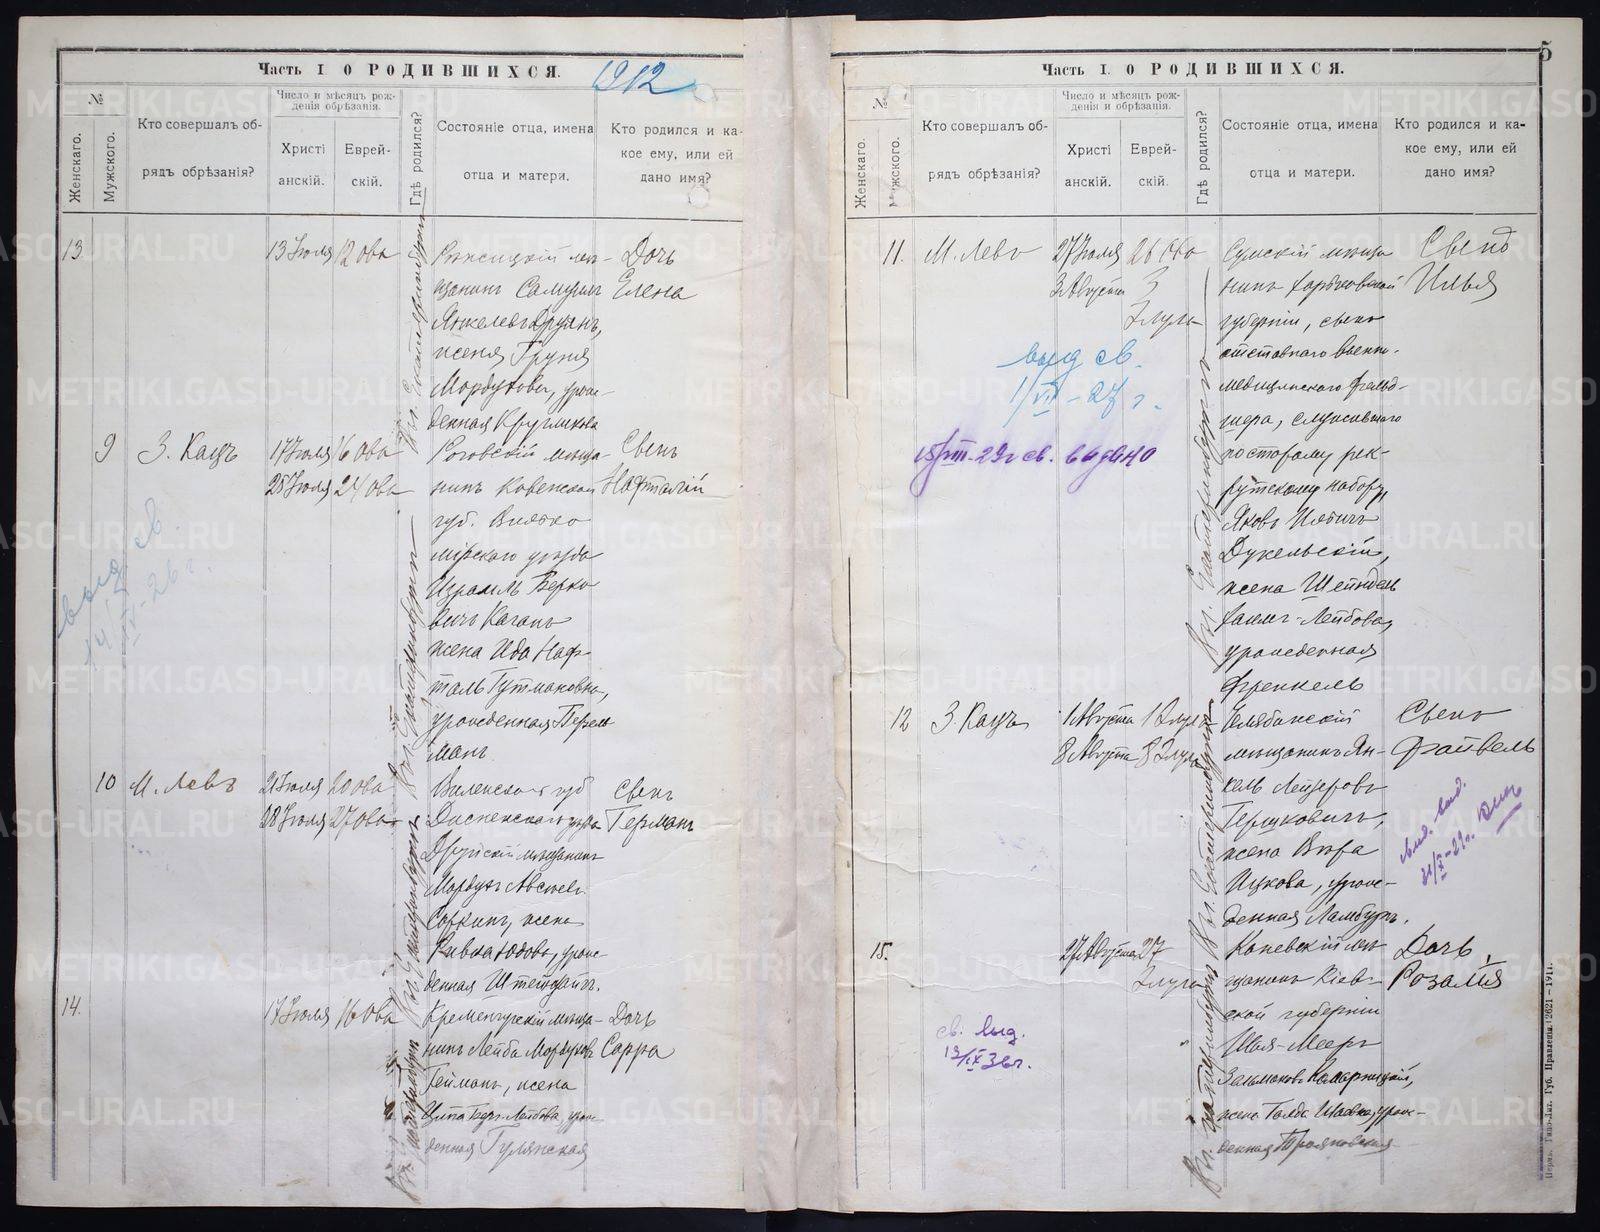 Часть I О РОДИВШИХСЯ.
1912
№
Женскаго.
Мужского.
Кто совершалъ об-
рядъ обрѣзанія?
Число и мѣсяцъ рож-
денія обрѣзанія.
Христі
анскій.
Еврей-
скій.
Гдѣ родился?
Состояніе отца, имена
отца и матери.
Кто родился и ка-
кое ему, или ей
дано имя?
13.
13 Іюля 12 Ова
въ г. Екатеринбургѣ
щанинъ Самуилъ
Янкелевъ Друянъ,
жена Груня
Мордухова, урож-
денная Кругликова
Дочь
Елена
9
З. Кацъ
17 Іюля 16 Ова
25 Іюля 24 Ова
въ г. Екатеринбургѣ
Роговскій мѣща-
нинъ Ковенской
губ. Вилько
мірскаго уѣзда
Израиль Берко
вичъ Каганъ
жена Ида Наф-
таль Гутмановна,
урожденная Перель
манъ
Сынъ
Нафталій
выд. св.
26 г.
10
М. Левъ
21 Іюля 20 Ова
28 Іюля 27 Ова
въ г. Екатеринбургѣ
Виленской губ
Дисненскаго уѣзда
Друйскій мѣщанинъ
Мордухъ
Соркинъ, жена
Ривка Юдова, урож-
денная
Сынъ
Германъ
14.
17 Іюля 16 Ова
въ г. Екатеринбургѣ
Кременчугскій мѣща-
нинъ Лейба Мордуховъ
Гейманъ, жена
Лейбова, урож-
денная Гулянская
Дочь
Сарра
5
Часть I. О РОДИВШИХСЯ.
№
Женскаго.
Мужского.
Кто совершалъ об-
рядъ обрѣзанія?
Число и мѣсяцъ рож-
денія и обрѣзанія.
Христі
анскій.
Еврей-
скій.
Гдѣ родился?
Состояніе отца, имена
отца и матери.
Кто родился и ка-
кое ему, или ей
дано имя?
11.
М. Левъ
27 Іюля 26 Ова
3 Августа 3
Элула
въ г. Екатеринбургѣ
Сумскій мѣща
нинъ Харьковской
губерніи, сынъ
отставного военно-
медицинскаго фельд-
шера, служившаго
по старому рек-
рутскому набору,
Яковъ Ильичъ
Дукельскій,
жена Шейндель
Лейбова,
урожденная
Френкель
Сынъ
Илья
выд св.
1/VII-27 г.
15/VIII-29г св. выдано
12
З. Кацъ
1 Августа 1 Элула
8 Августа 8 Элула
въ г. Екатеринбургѣ
Челябинскій
мѣщанинъ Ян-
кель Лейзеровъ
Гершковичъ,
жена Вѣра
Ицкова, урож-
денная Ламбургъ.
Сынъ
Файвель
выд.
15.
27 Августа 27
Элула
въ г. Екатеринбургѣ
Каневскій мѣ
щанинъ Кіев-
ской губерніи
Шая-Мееръ
Зельмановъ Комарницкій,
жена Голда
денная Трояновская
Дочь,
Розалія
св. выд.
13/IX 36г.
Пермь. Типо-Лит. Губ. Правленія. 2621-1911.
METRIKI.GASO-URAL.RU